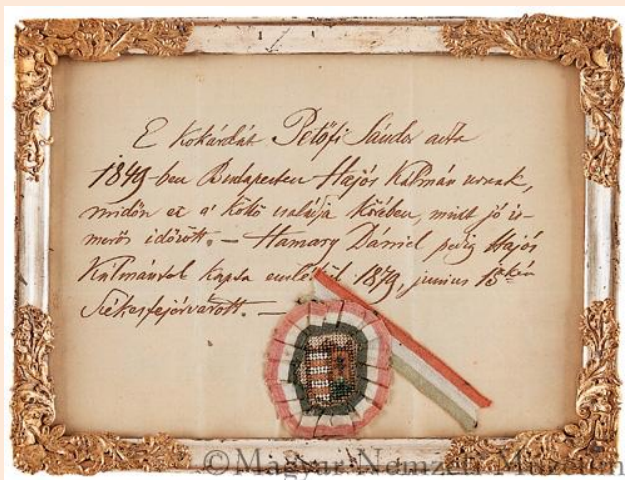 E kokárdát Petőfi Sándor adta
1849-ben Budapesten Hajós Kálmán urnak,
midőn ez a' költő családja körében, mint jó is-
merős időzött. — Hamary Dániel pedig Hajós
Kálmántol kapta emlékül 1879, junius 15-kén
Székesfejérvárott. —
©Magyar Nemzeti Múzeum